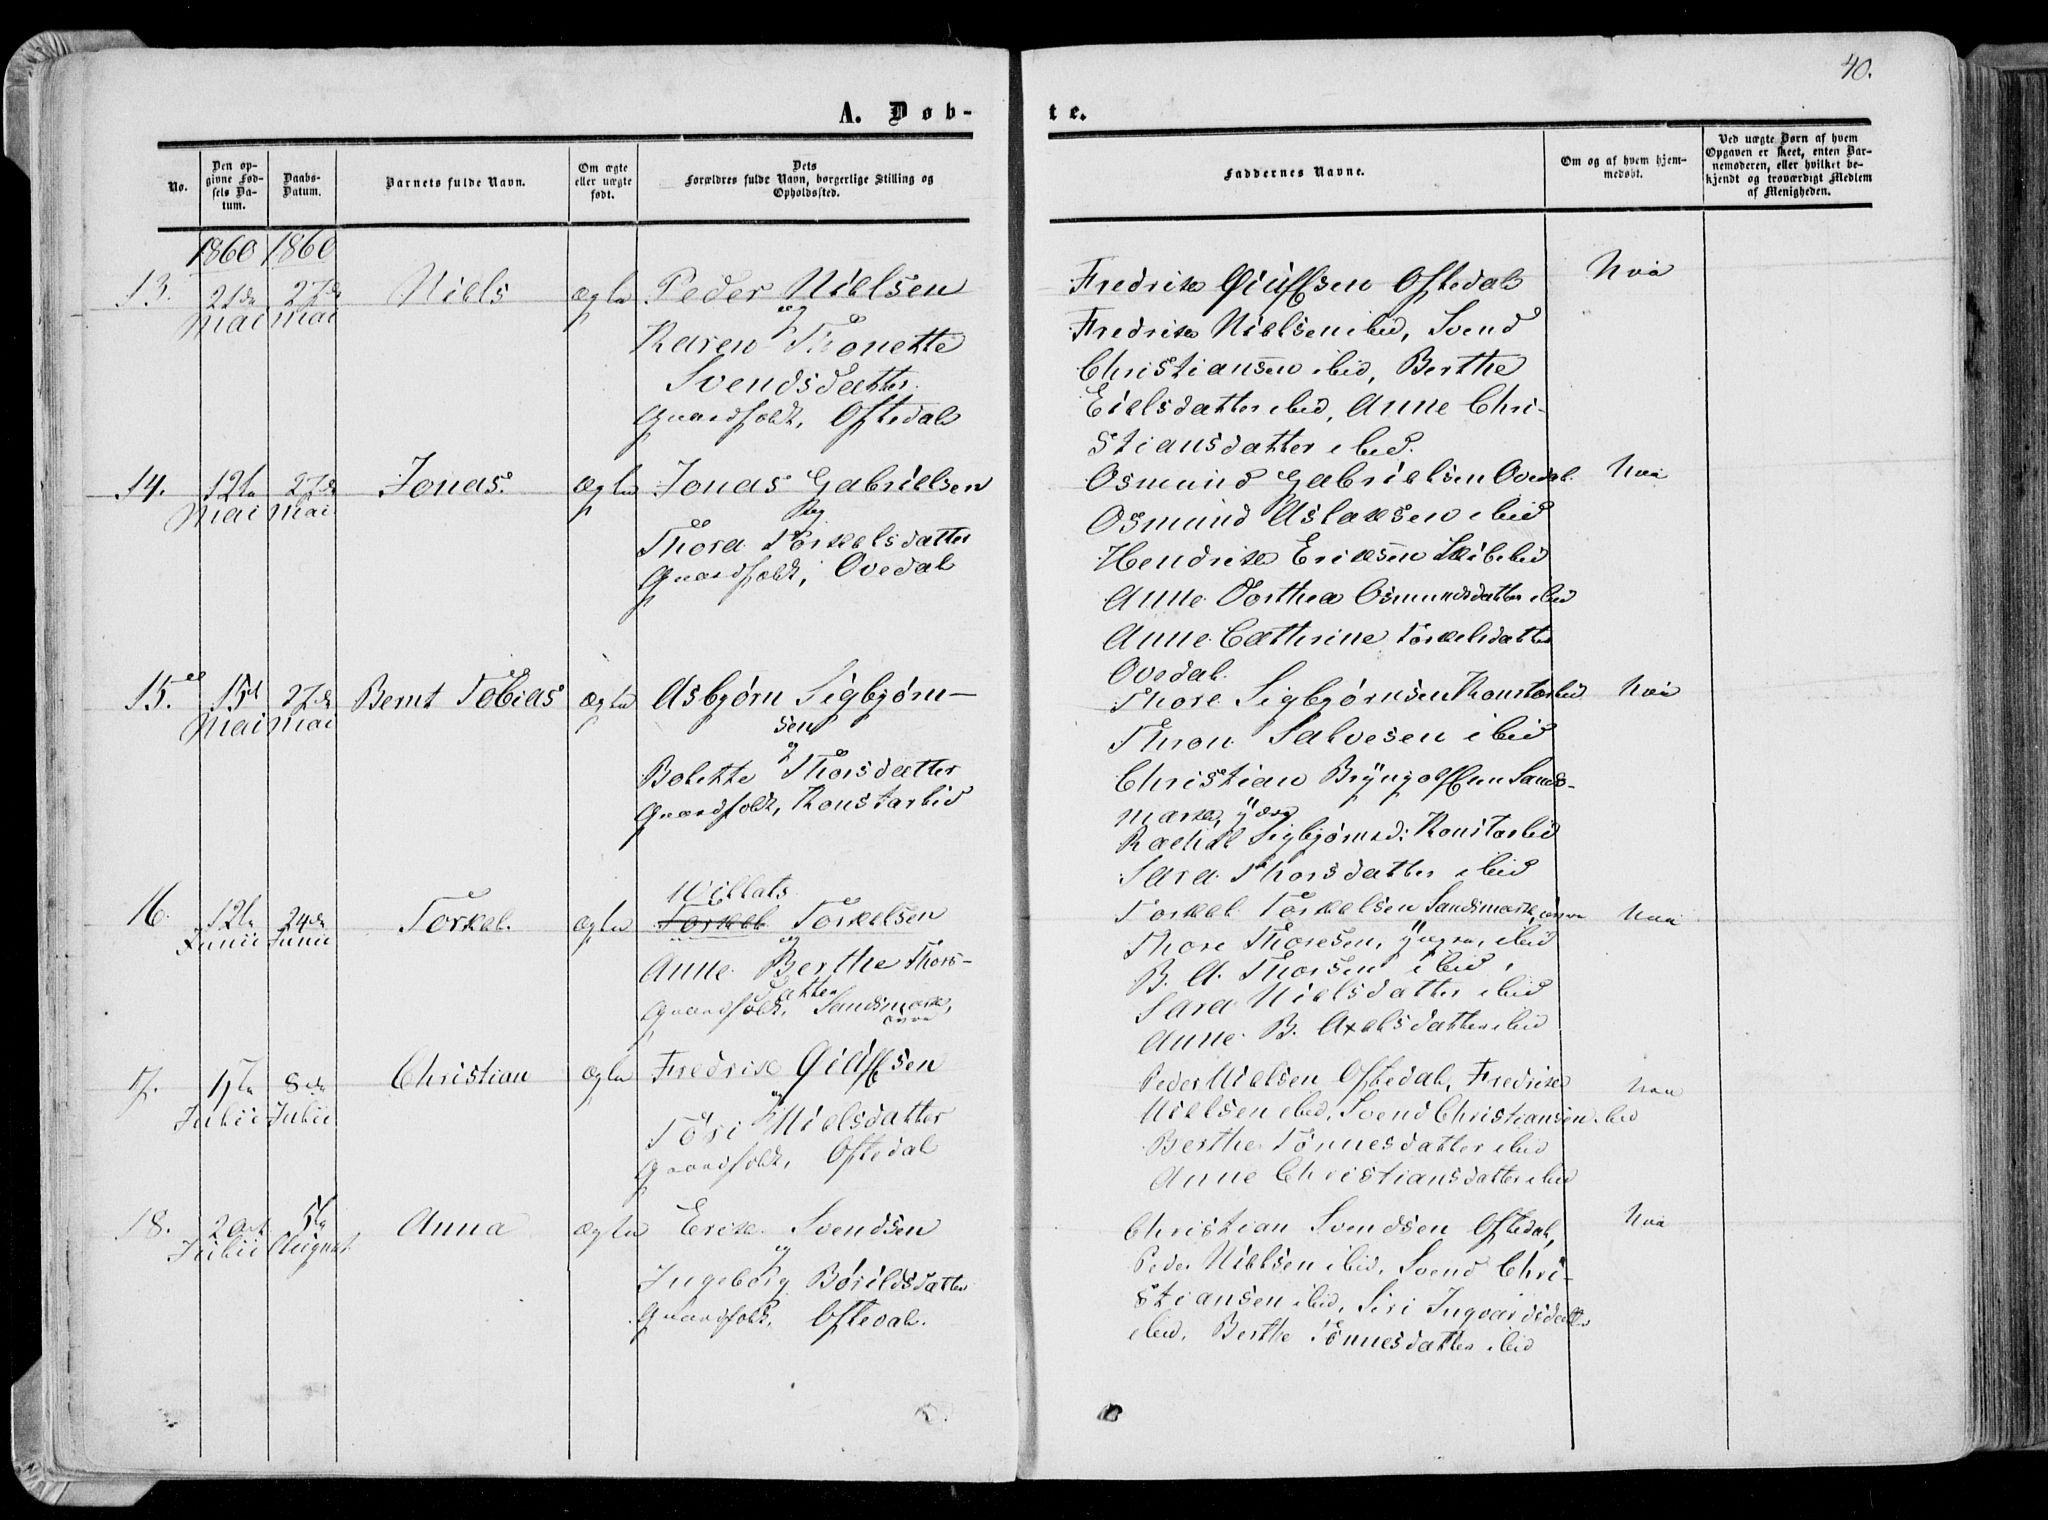 40.
A. Døb-
te.
No.
Den op-
givne Fød-
sels Da-
tum.
Daabs-
Datum.
Barnets fulde Navn.
Om ægte
eller uægte
født.
Dets
Forældres fulde Navn, borgerlige Stilling og
Opholdssted.
Faddernes Navne.
Om og af hvem hjem-
medøbt.
Ved uægte Børn af hvem
Opgaven er skeet, enten Bar-
nemoderen, eller hvilket be-
kjendt og troværdigt Medlem
af Menigheden.
1860 1860
13. 21de 27de Niels ægte Peder Nielsen
Mai Mai og
Karen Thonette
Svendsdatter
Gaardfolk, Oftedal
Fredrik Oftedal
Fredrik Nielsen ibid, Svend
Christiansen ibid, Berthe
Eielsdatter ibid, Anne Chri-
stiansdatter ibid.
14. 12te 27de Jonas. ægte Jonas Gabrielsen
Mai Mai og
Thora Torkelsdatter
Gaardfolk, Ovedal
Osmund Gabrielsen Ovedal
Osmund Aslaksen ibid
Hendrik Eriksen ibid
Anne Dorthea Osmundsdatter ibid
Anne Cathrine Torkelsdatter
Ovedal.
15. 15de 27de Bernt Tobias ægte Asbjørn Sigbjørn-
Mai Mai sen
og
Bolette Thorsdatter
Gaardfolk, Konstarlid
Thore Sigbjørnsen Konstarlid
Thron Salvesen ibid
Christian Sands-
mark, ydre
Rachel Sigbjørnsd: Konstarlid
Sara Thorsdatter ibid
16. 12te 24de Torkel. ægte Torkel Torkelsen
Junii Junii og
Anne Berthe Thors-
datter
Gaardfolk, Sandsmark,
øvre
Torkel Torkelsen Sandsmark, øvre
Thore Thoresen, ibid
B. A. Thorsen ibid,
Sara Nielsdatter ibid
Anne B. Axelsdatter ibid
17. 8de Christian ægte Fredrik
Julii Julii og
Töri Nielsdatter
Gaardfolk, Oftedal
Peder Nielsen Oftedal, Fredrik
Nielsen ibid, Svend Christiansen ibid
Berthe Tönnesdatter ibid
Anne Christiansdatter ibid
18. 5te Anna ægte Erik Svendsen
Julii August og
Ingeborg Börildsdatter
Gaardfolk, Oftedal.
Christian Svendsen Oftedal,
Peder Nielsen ibid, Svend Chri-
stiansen ibid, Siri Ingvardsdatter
ibid, Berthe Tönnesdatter ibid